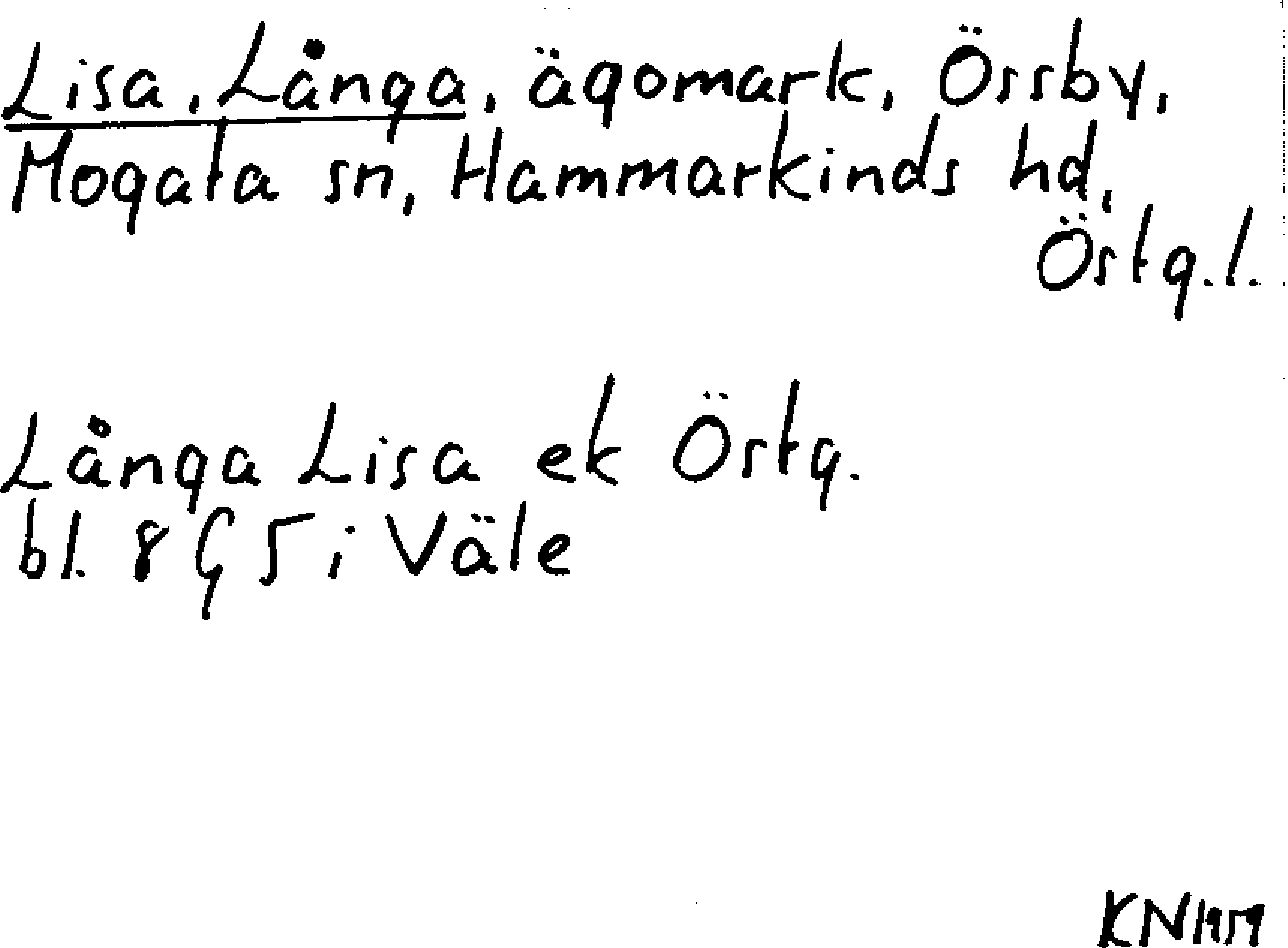 Lisa, Långa, ägomark, Össby,
Mogata sn, Hammarkinds hd,
Östg.l.
Långa Lisa ek Östg.
bl. 8 G 5 i Väle
KN 1959